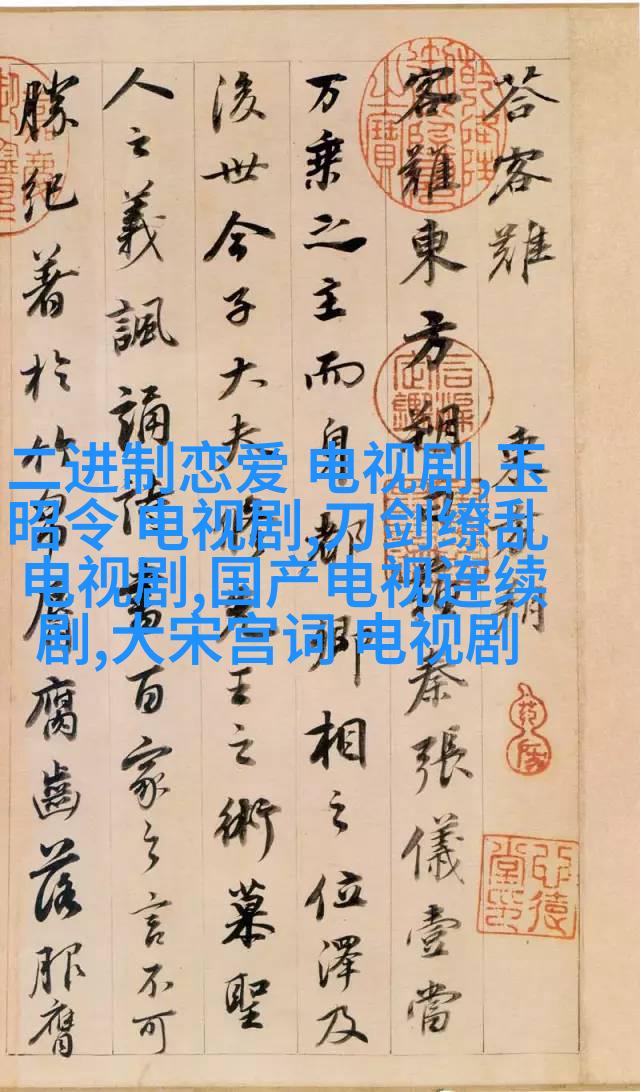 荅客難 東方朔
客難東方朔曰蘇秦張儀壹當
万乘之主而身都卿相之位澤及
後世今子大夫脩先王之術慕聖
人之義諷誦詩書百家之言不可
勝紀著於竹帛唇腐齒落服膺
二进制恋爱 电视剧,玉
昭令 电视剧,刀剑缭乱
电视剧,国产电视连续
剧,大宋宫词 电视剧